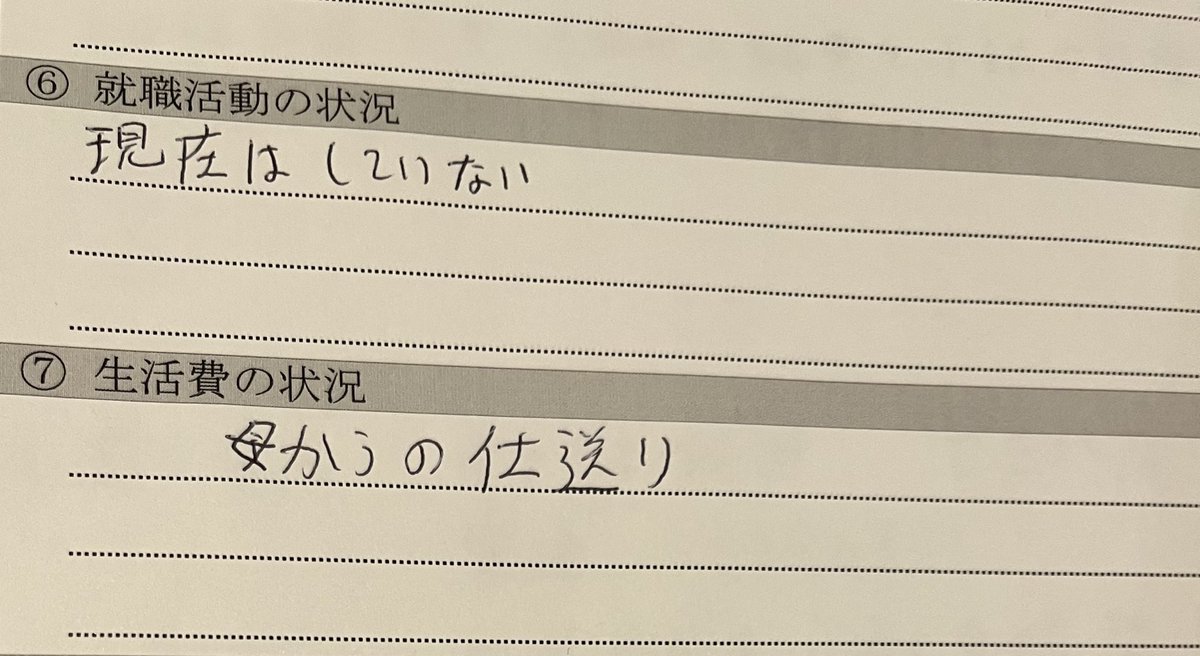 ⑥ 就職活動の状況
現在はしていない
⑦ 生活費の状況
母からの仕送り